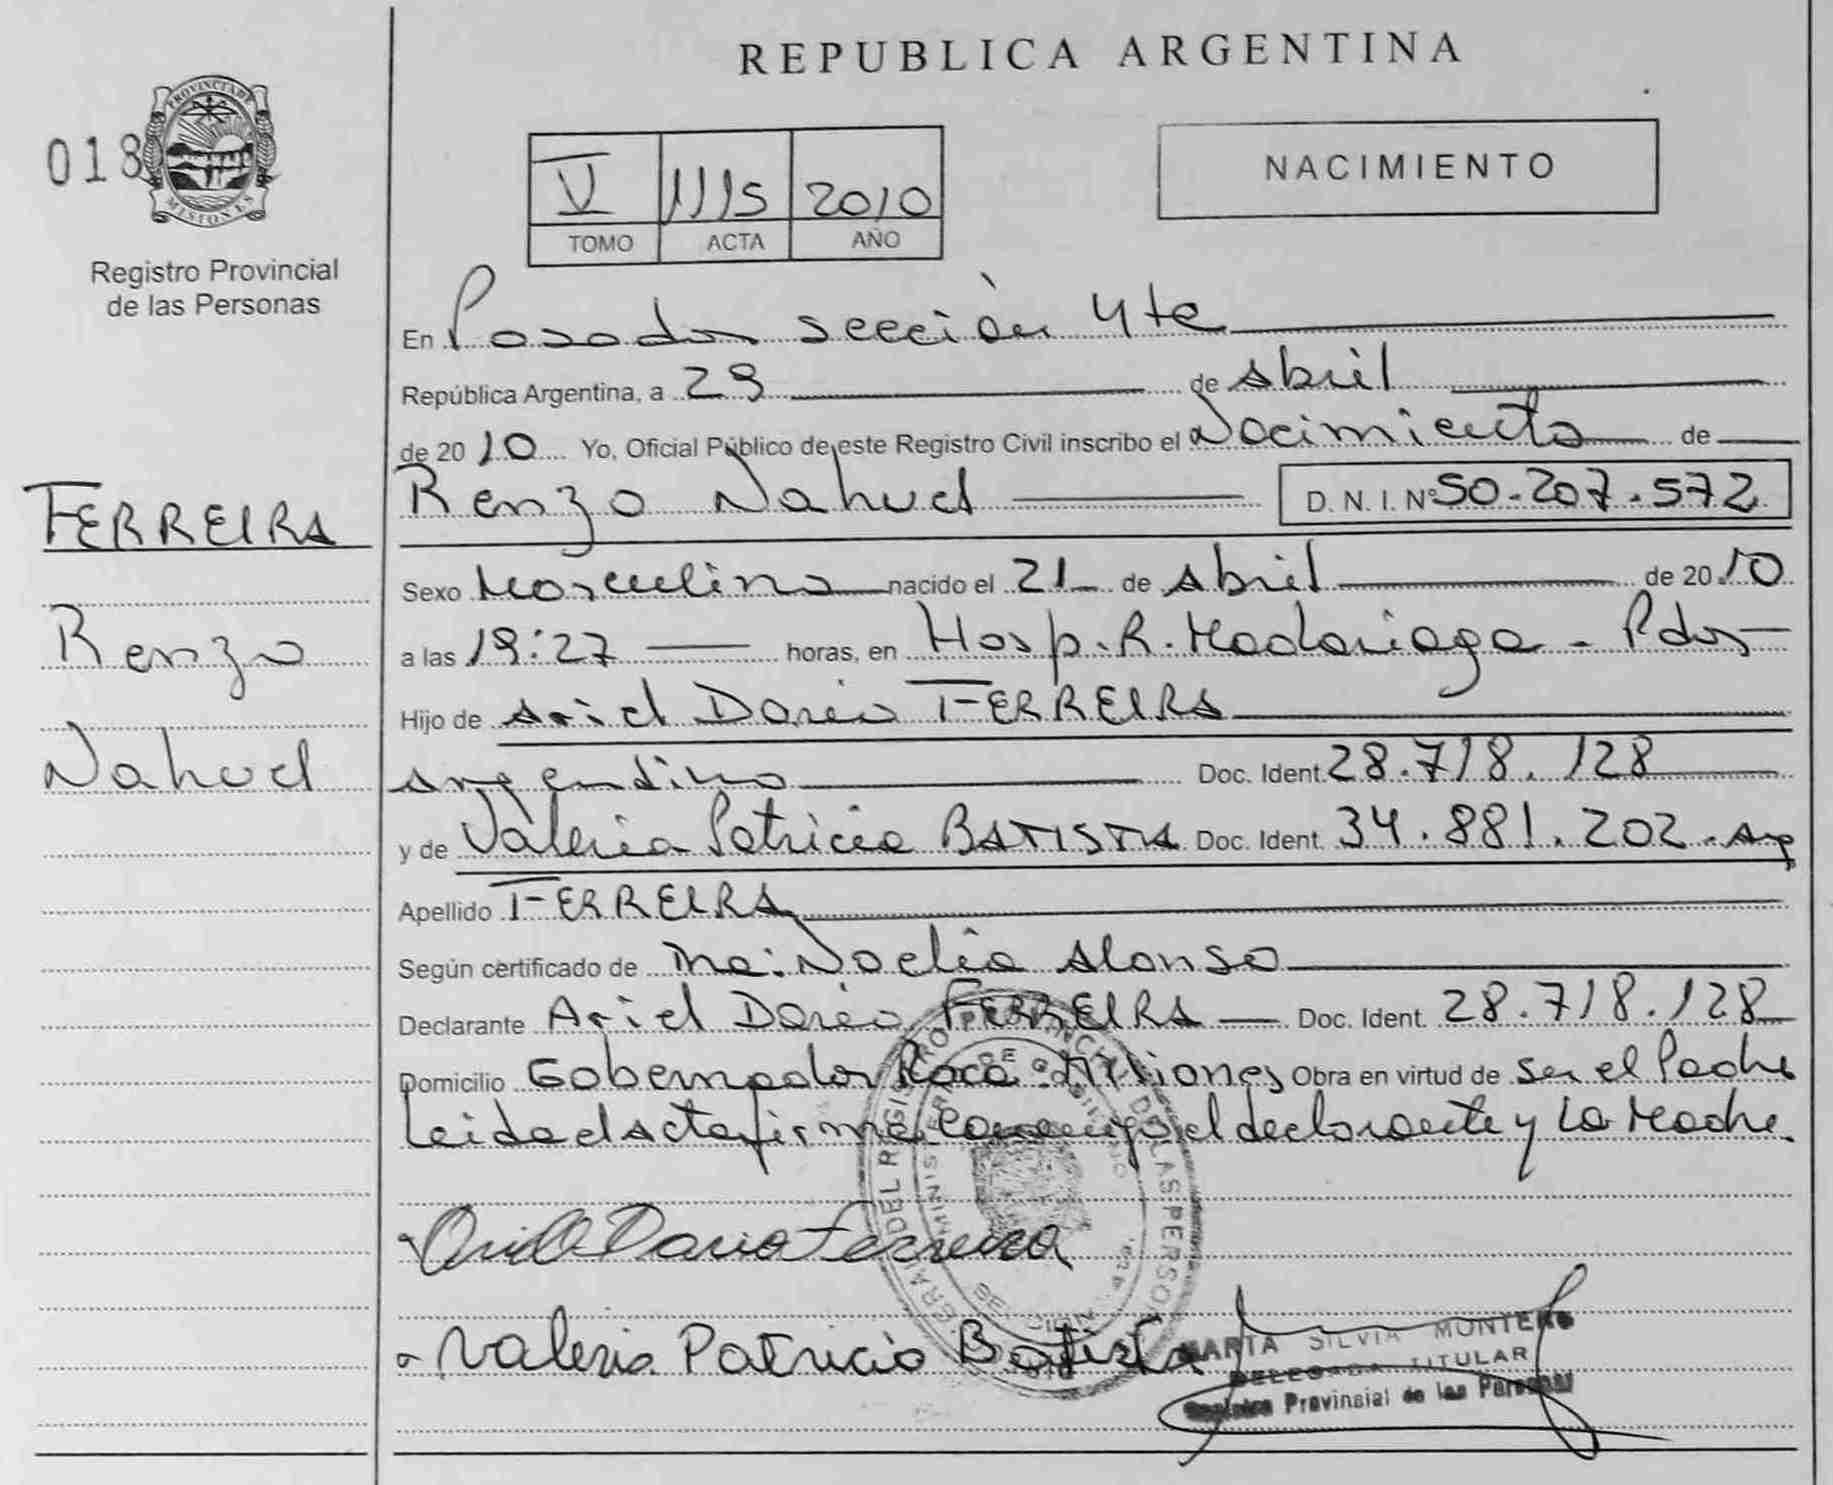 REPUBLICA ARGENTINA
018
PROVINCIA DE MISIONES
Registro Provincial
de las Personas
V 1115 2010
TOMO ACTA AÑO
NACIMIENTO
En Posadas sección 4ta
República Argentina, a 29 de Abril
de 2010 Yo, Oficial Público de este Registro Civil inscribo el Nacimiento de
Renzo Nahuel D. N. I. Nº 50.207.572
FERREIRA
Renzo
Nahuel
Sexo Masculino nacido el 21 de Abril de 2010
a las 19:27 horas, en Hosp. R. Madariaga - Pdas
Hijo de Ariel Dario FERREIRA
Argentino Doc. Ident. 28.718.128
y de Valeria Patricia BATISTA Doc. Ident. 34.881.202 - Arg
Apellido FERREIRA
Según certificado de Noelia Alonso
Declarante Ariel Dario FERREIRA Doc. Ident. 28.718.128
Domicilio Gobernador Roca - Misiones Obra en virtud de ser el Padre
Leida el Acta firma conmigo el declarante y la Madre.
Dario Ferreira
Valeria Patricia Batista
MARTA SILVIA MONTERO
DELEGADA TITULAR
Registro Provincial de las Personas